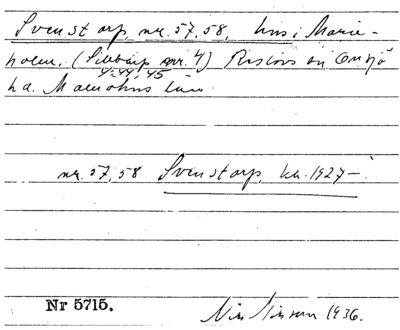 Svenstorp, nr. 57, 58, hus i Marie-
holm, (Sillbarp nr. 4)
4:44, 45
Onsjö
hd. Malmöhus län.
nr. 57, 58 Svenstorp, ka. 1927–.
Nr 5715.
Nils Nilsson 1936.